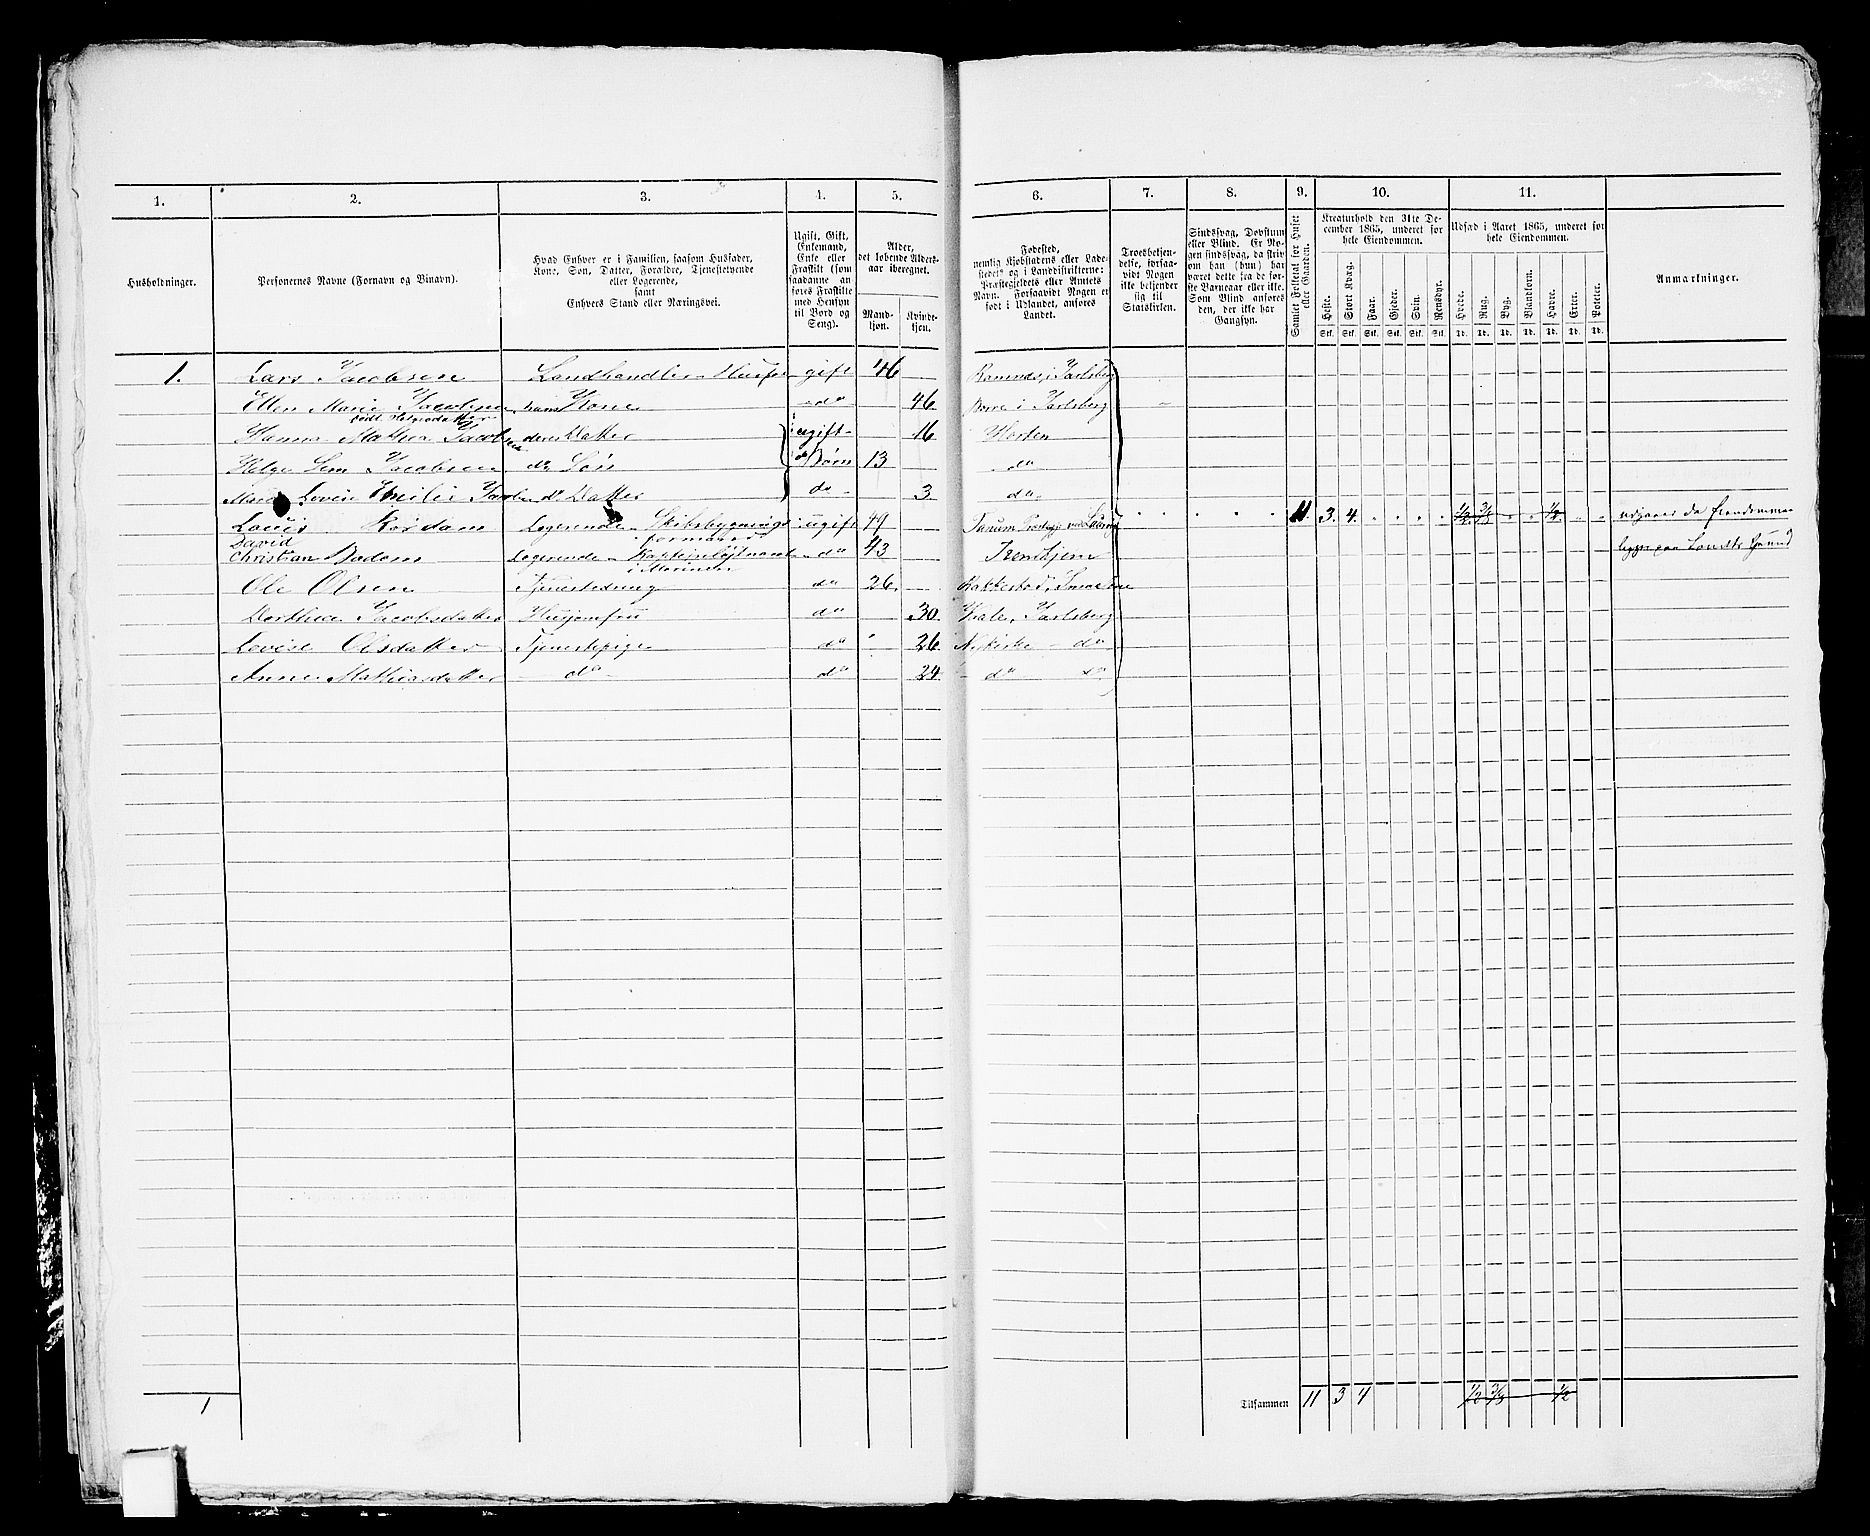 1. 2. 3. 4. 5. 6. 7. 8. 9. 10. 11.
Husholdninger.
Personernes Navne (Fornavn og Binavn).
Hvad Enhver er i Familien, saasom Husfader,
Kone, Søn, Datter, Forældre, Tjenestetyende
eller Logerende,
samt
Enhvers Stand eller Næringsvei.
Ugift, Gift,
Enkemand,
Enke eller
Fraskilt (som
saadanne an-
føres Fraskilte
med Hensyn
til Bord og
Seng).
Alder,
det løbende Alders-
aar iberegnet.
Mand-
kjøn.
Kvinde-
kjøn.
Fødested,
nemlig Kjøbstadens eller Lade-
stedets og i Landdistrikterne:
Præstegjeldets eller Amtets
Navn. Forsaavidt Nogen er
født i Udlandet, anføres
Landet.
Troesbekjen-
delse, forsaa-
vidt Nogen
ikke bekjender
sig til
Statskirken.
Sindssvag, Døvstum
eller Blind. Er No-
gen sindssvag, da skriv
om han (hun) har
været dette fra de før-
ste Barneaar eller ikke.
Som Blind anføres
den, der ikke har
Gangsyn.
Samlet Folketal for Huset
eller Gaarden.
Kreaturhold den 31te De-
cember 1865, underet for
hele Eiendommen.
Heste. Stort Kvæg. Faar. Gjeder. Svin. Rensdyr.
Stk. Stk. Stk. Stk. Stk. Stk.
Udsæd i Aaret 1865, underet for
hele Eiendommen.
Hvede. Rug. Byg. Blandkorn. Havre. Erter. Poteter.
Td. Td. Td. Td. Td. Td. Td.
Anmærkninger.
1. Lars Jacobsen Landhandler Husf gift 46 Ramnæs i Jarlsberg
Ellen Marie Jacobsen hans Kone do 46 Borre i Jarlsberg
født Helgesdatter
Hanna Mathea Jacobsen deres Datter ugift 16 Horten
Helge Sem Jacobsen do Søn Børn 13 do
Marie Lovise Emilie Jacobsen do Datter do 3 do
Louis Rosdam Logerende Skibsbygnings ugift 49 11 3 4 1/2 3/8 1/2
formand
David
Christian Bodom Logerende do 43 Trondhjem
i Marinen
Ole Olsen Tjenestedreng do 26 Rakkestad Smaalene
Dorthea Jacobsdatter Husjomfru do 30 Vale Jarlsberg
Lovise Olsdatter Tjenestepige do 26 Nykirke do
Anne Mathiasdatter do do 24 do do
1 Tilsammen 11 3 4 1/2 3/8 1/2